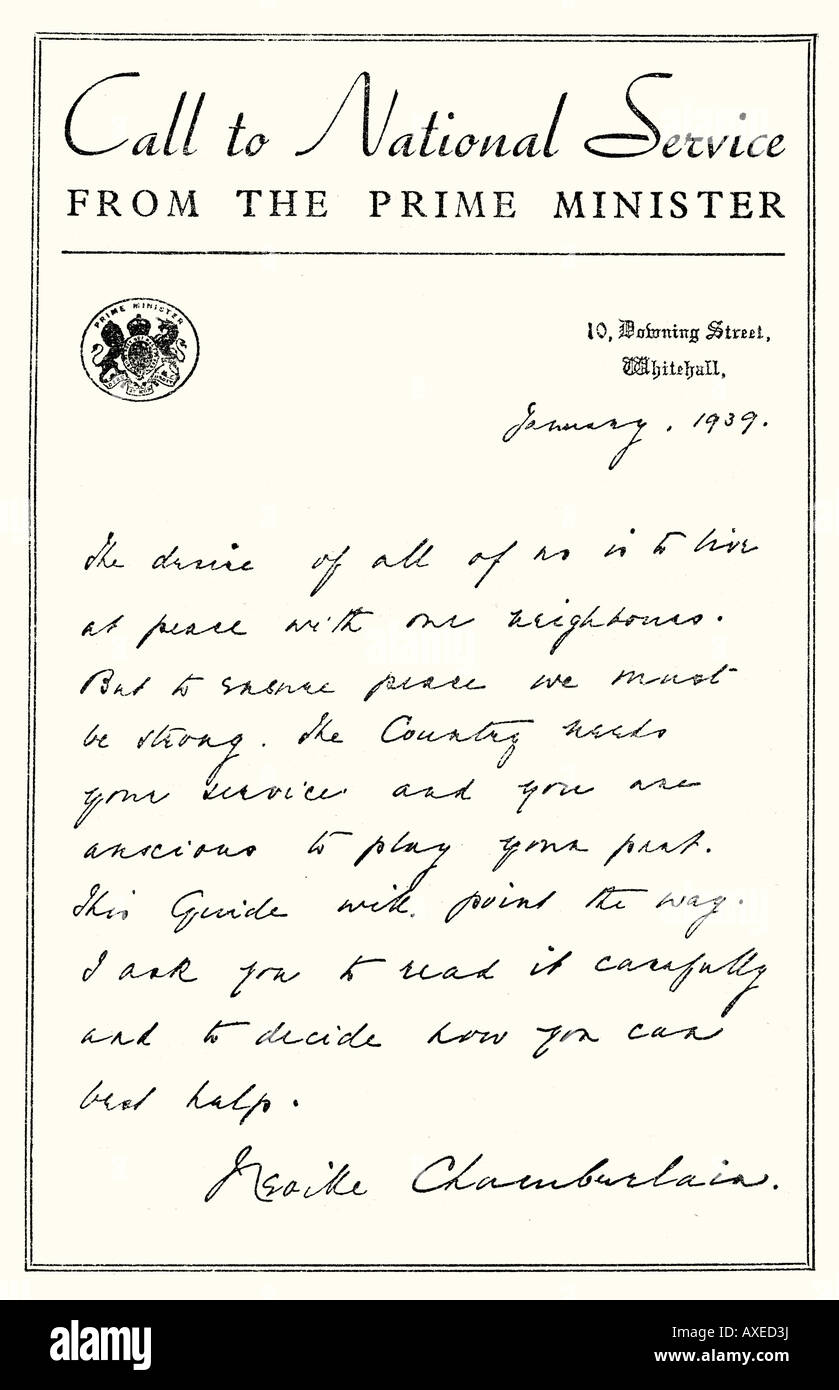 Call to National Service
FROM THE PRIME MINISTER
PRIME MINISTER
10, Downing Street,
Whitehall,
January, 1939.
The desire of all of us is to live
at peace with our neighbours.
But to ensure peace we must
be strong. The Country needs
your service and you are
anxious to play your part.
This Guide will point the way.
I ask you to read it carefully
and to decide how you can
best help.
Neville Chamberlain.
alamy
Image ID: AXED3J
www.alamy.com